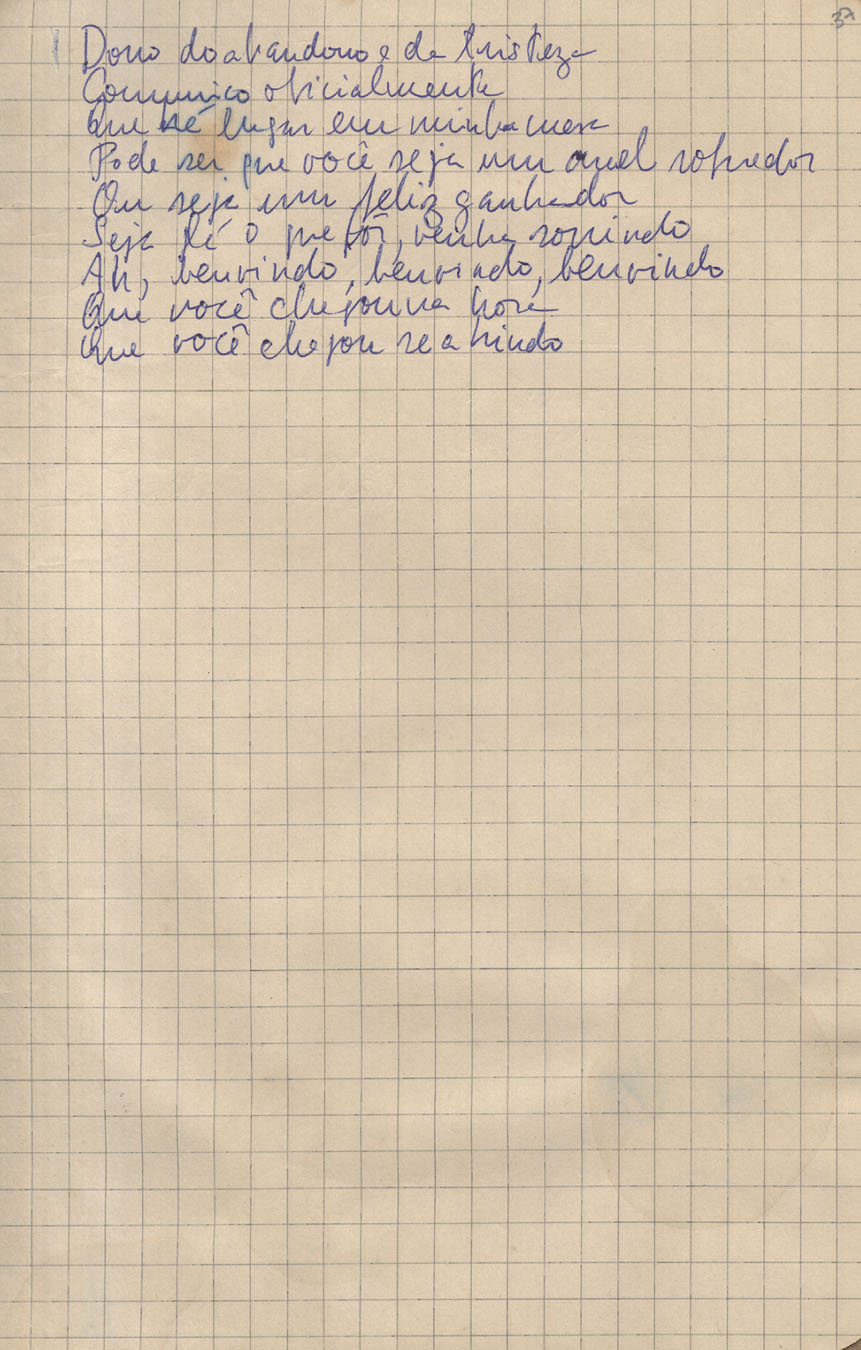 37
Dono do abandono e da tristeza
Comunico oficialmente
Que há lugar em minha mesa
Pode ser que você seja um cruel sofredor
Ou seja um feliz ganhador
Seja lá o que for, venha sorrindo
Ah, benvindo, benvindo, benvindo
Que você chegou na hora
Que você chegou se abrindo